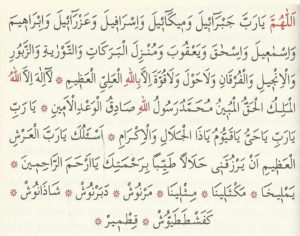 اَللّٰهُمَّ يَارَبَّ جَبْرَٓائِيلَ وَمِيكَٓائِيلَ وَاِسْرَافِيلَ وَعَزْرَٓائِيلَ وَاِبْرٰهِيمَ
وَاِسْمٰعِيلَ وَاِسْحٰقَ وَيَعْقُوبَ وَمُنْزِلَ الْبَرَكَاتِ وَالتَّوْرٰيةِ وَالزَّبُورِ
وَالْاِنْجِيلِ وَالْفُرْقَانِ وَلَاحَوْلَ وَلَاقُوَّةَ اِلَّا بِاللّٰهِ الْعَلِيِّ الْعَظِيمِ * لَٓااِلٰهَ اِلَّا اللّٰهُ
الْمَلِكُ الْحَقُّ الْمُبِينُ مُحَمَّدٌ رَسُولُ اللّٰهِ صَادِقُ الْوَعْدِ الْاَمِينِ * يَا رَبِّ
يَارَبِّ يَاحَيُّ يَاقَيُّومُ يَاذَا الْجَلَالِ وَالْاِكْرَامِ * اَسْئَلُكَ يَارَبَّ الْعَرْشِ
الْعَظِيمِ اَنْ يَرْزُقَنِى حَلَالًا طَيِّبًا بِرَحْمَتِكَ يَٓااَرْحَمَ الرَّاحِمِينَ *
يَمْلِيخَا * مَكْثَلِينَا * مِثْلِينَا * مَرْنُوشْ * دَبَرْنُوشْ * شَاذَنُوشْ *
كَفَشْطَطَيُّوشْ * قِطْمِيرْ *